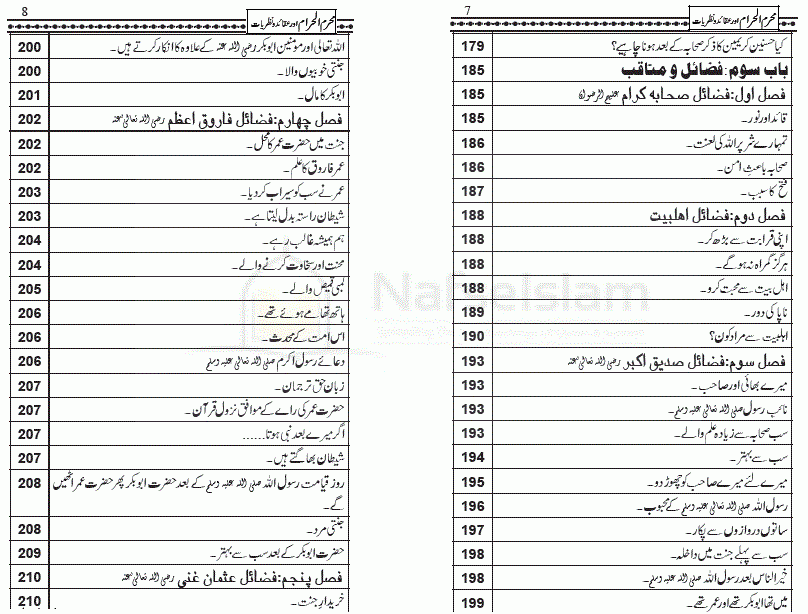 7
محرم الحرام اور عقائد و نظریات
کیا حسنین کریمین کا ذکر صحابہ کے بعد ہونا چاہیے؟ 179
باب سوم: فضائل و مناقب 185
فصل اول: فضائل صحابہ کرام علیہم الرضوان 185
قائد اور نور۔ 185
تمہارے شر پر اللہ کی لعنت۔ 186
صحابہ باعثِ امن۔ 186
فتح کا سبب۔ 187
فصل دوم: فضائل اهلبیت 188
اپنی قرابت سے بڑھ کر۔ 188
ہرگز گمراہ نہ ہو گے۔ 188
اہل بیت سے محبت کرو۔ 188
ناپاکی دور۔ 189
اہلبیت سے مراد کون؟ 190
فصل سوم: فضائل صدیق اکبر رضی اللہ تعالیٰ عنہ 193
میرے بھائی اور صاحب۔ 193
نائب رسول صلی اللہ تعالیٰ علیہ وسلم۔ 193
سب صحابہ سے زیادہ علم والے۔ 193
سب سے بہتر۔ 194
میرے لئے میرے صاحب کو چھوڑ دو۔ 195
رسول اللہ صلی اللہ تعالیٰ علیہ وسلم کے محبوب۔ 196
ساتوں دروازوں سے پکار۔ 197
سب سے پہلے جنت میں داخلہ۔ 198
خیر الناس بعد رسول اللہ صلی اللہ تعالیٰ علیہ وسلم۔ 198
میں تھا ابوبکر تھے اور عمر تھے۔ 199
8
محرم الحرام اور عقائد و نظریات
اللہ تعالیٰ اور مومنین ابوبکر رضی اللہ عنہ کے علاوہ کا انکار کرتے ہیں۔ 200
جنتی خوبیوں والا۔ 200
ابوبکر کا مال۔ 201
فصل چهارم: فضائل فاروق اعظم رضی اللہ تعالیٰ عنہ 202
جنت میں حضرت عمر کا محل۔ 202
عمر فاروق کا علم۔ 202
عمر نے سب کو سیراب کر دیا۔ 203
شیطان راستہ بدل لیتا ہے۔ 203
ہم ہمیشہ غالب رہے۔ 204
محنت اور سخاوت کرنے والے۔ 204
لمبی قمیض والے۔ 205
ہاتھ تھامے ہوئے تھے۔ 206
اس امت کے محدث۔ 206
دعائے رسول اکرم صلی اللہ تعالیٰ علیہ وسلم 206
زبان حق ترجمان۔ 207
حضرت عمر کی رائے کے موافق نزول قرآن۔ 207
اگر میرے بعد نبی ہوتا...... 207
شیطان بھاگتے ہیں۔ 207
روز قیامت رسول اللہ صلی اللہ تعالیٰ علیہ وسلم کے بعد حضرت ابوبکر پھر حضرت عمر اٹھیں 208
گے۔
جنتی مرد۔ 208
حضرت ابوبکر کے بعد سب سے بہتر۔ 209
فصل پنجم: فضائل عثمان غنی رضی اللہ تعالیٰ عنہ 210
خریدارِ جنت۔ 210
NafseIslam